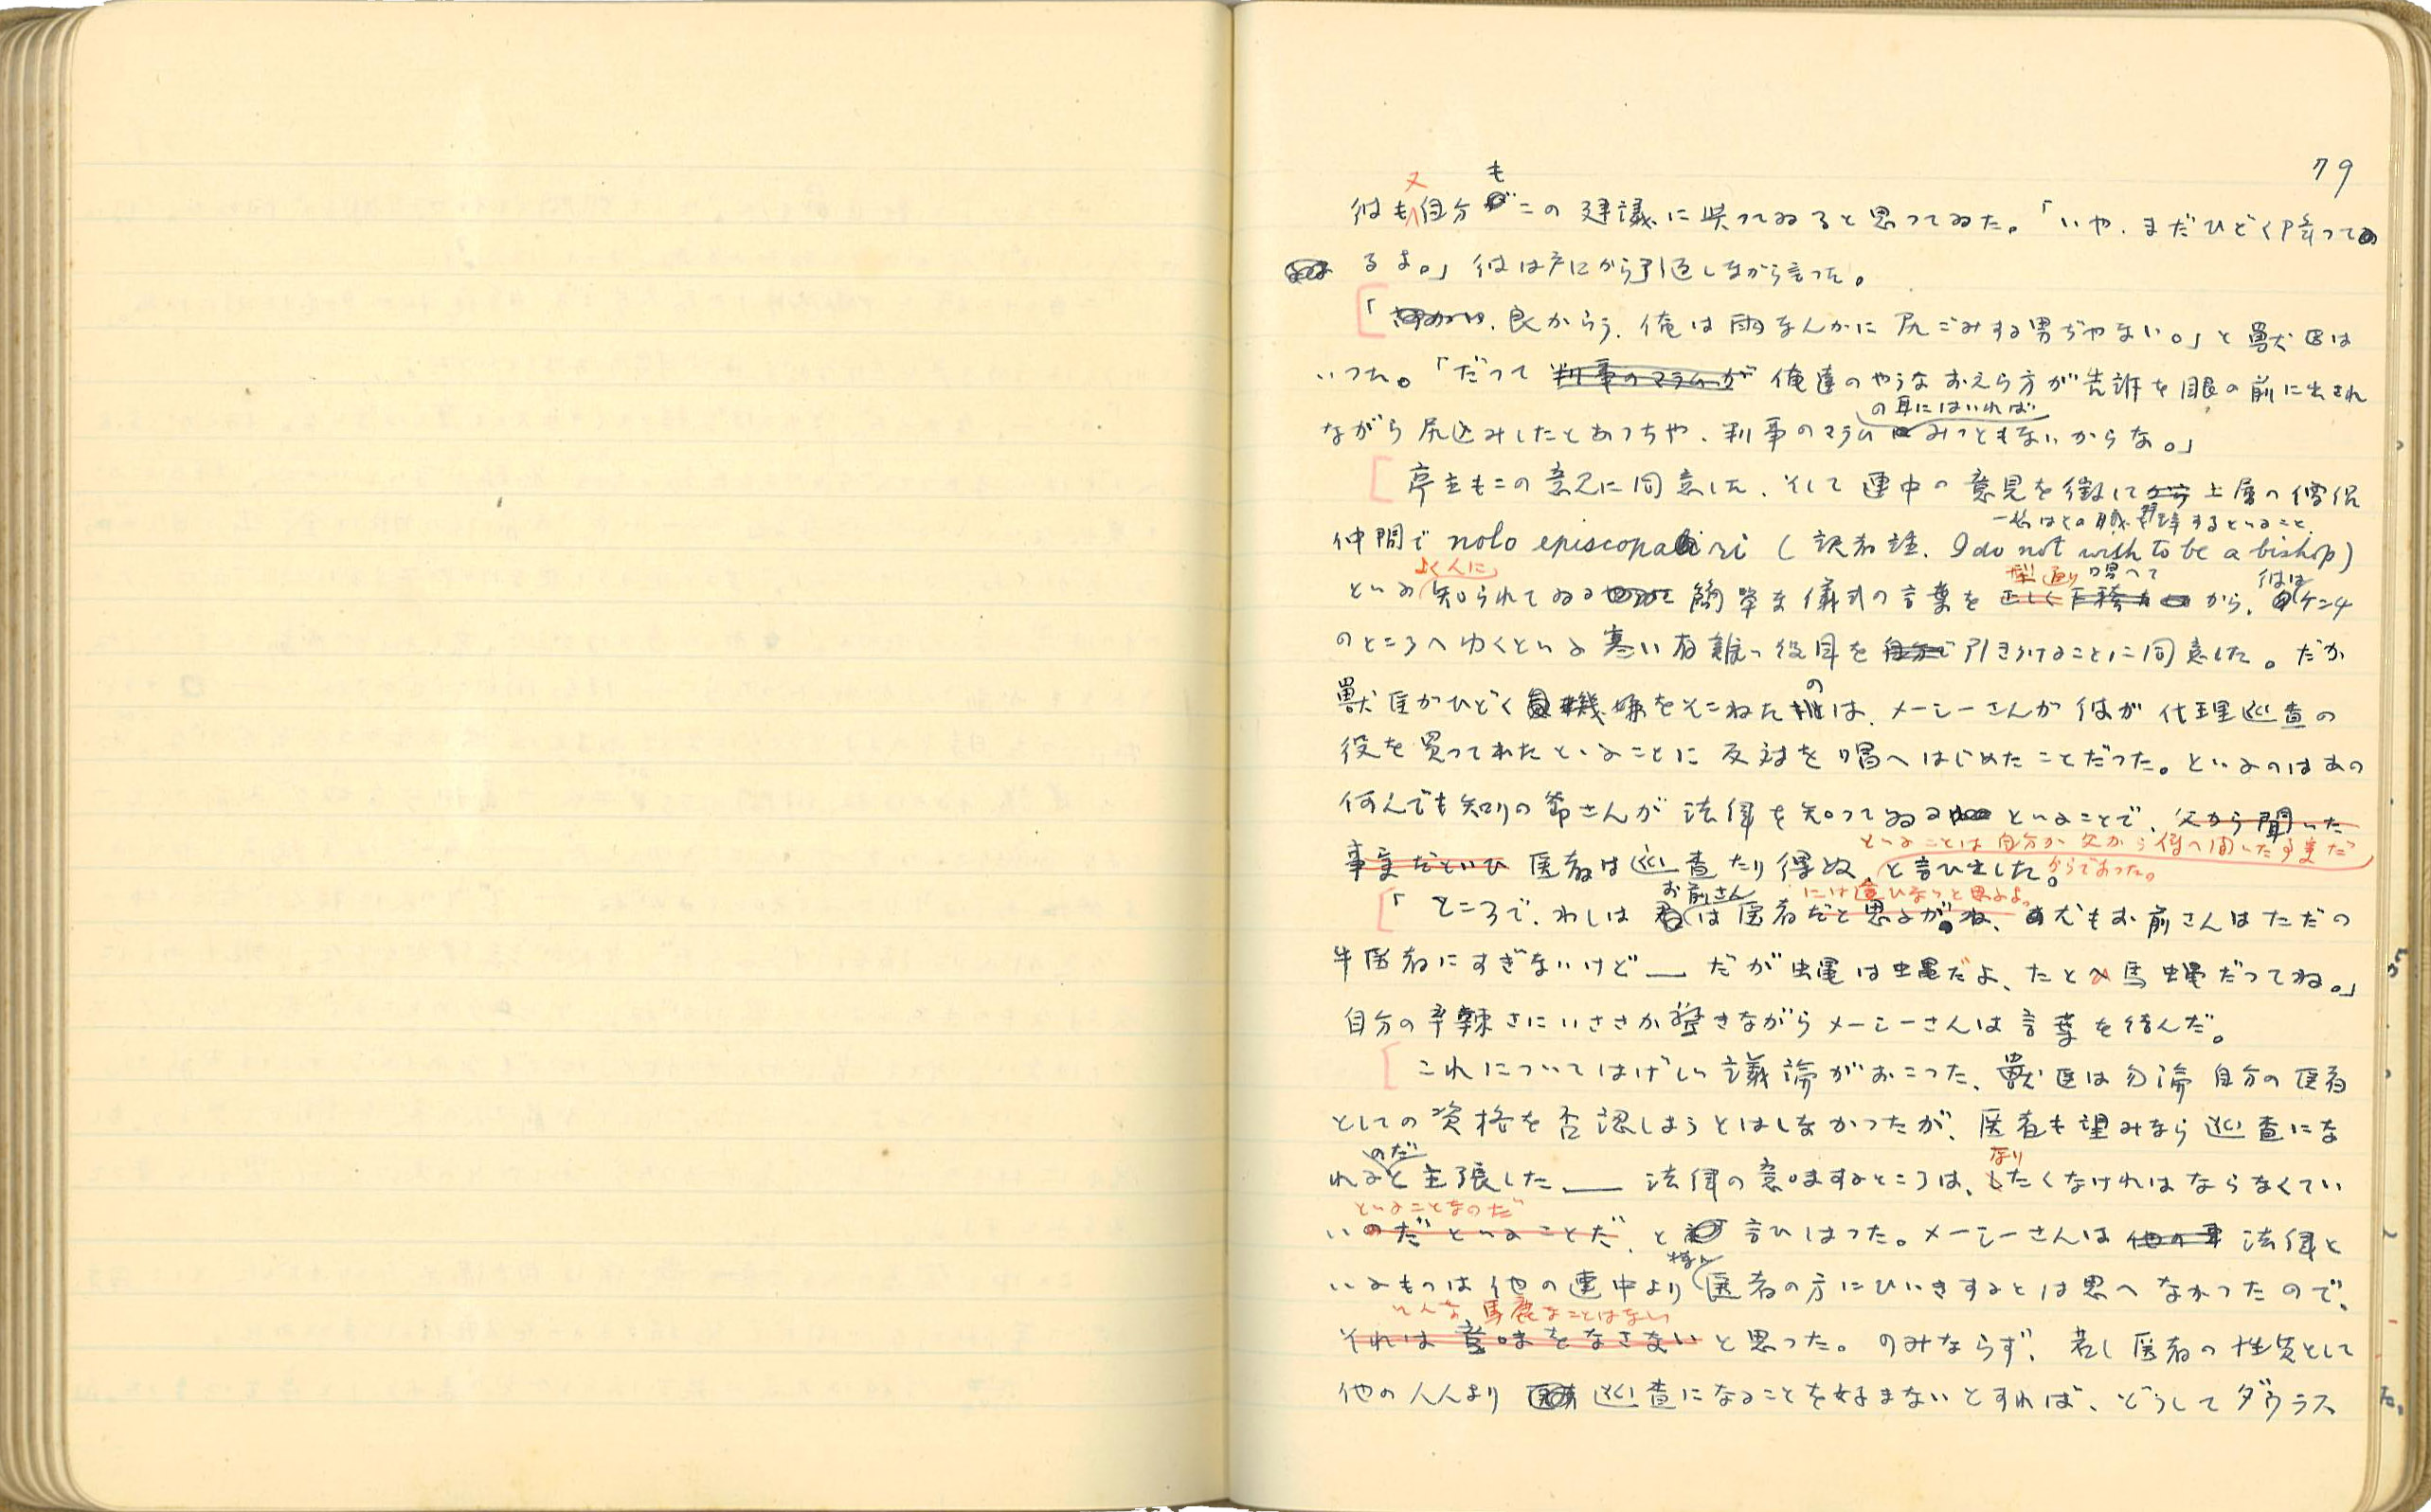 79
彼も又自分もこの建議に與つてゐると思つてゐた。「いや、まだひどく降つて
るよ。」彼は戸口から引返しながら言つた。
「良からう、俺は雨なんかに尻ごみする男ぢやない。」と獸医は
いつた。「だつて 判事のマラムが 俺達のやうなおえら方が告訴を眼の前に出され
の耳にはいれば
ながら尻込みしたとあつちや、判事のマラム みつともないからな。」
亭主もこの意見に同意した、そして連中の意見を徴して 上層の僧侶
一名はその職を辞するといふこと
仲間で nolo episcopari (訳者註、I do not wish to be a bishop)
よく人に 型通り 唱へて 彼は
といふ知られてゐる 簡単な儀式の言葉を 正しく から、ケンチ
のところへゆくといふ寒い有難い役目を 自分で 引きうけることに同意した。だが
獸医がひどく機嫌をそこねたのは、メーシーさんが彼が代理巡査の
役を買つてでたといふことに反対を唱へはじめたことだつた。といふのはあの
何んでも知りの爺さんが法律を知つてゐる といふことで、父から聞いた
といふことは自分が父から傳へ聞いた事実だ
事実だといひ 医者は巡査たり得ぬ、と言ひ出した。からであつた。
お前さん には違ひないと思ふよ。
「ところで、わしは 君は医者だと思ふがね、尤もお前さんはただの
牛医者にすぎないけど― だが蝿は蝿だよ、たとへ馬蝿だつてね。」
自分の辛辣さにいささか驚きながらメーシーさんは言葉を結んだ。
これについてはげしい議論がおこつた、獸医は勿論自分の医者
としての資格を否認しようとはしなかつたが、医者も望みなら巡査にな
のだ なり
れると主張した ― 法律の意味するところは、したくなければならなくてい
といふことなのだ
いのだといふことだ、と 言ひはつた。メーシーさんは 他の事 法律と
特に
いふものは他の連中より医者の方にひいきするとは思へなかつたので、
そんな馬鹿なことはない
それは意味をなさない と思つた。のみならず、若し医者の性質として
他の人人より 巡査になることを好まないとすれば、どうしてダウラス